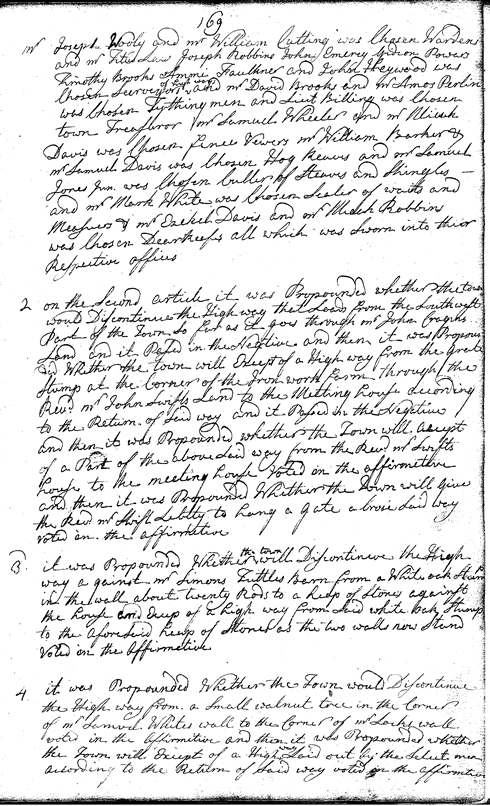 169
mr Joseph Wooly and mr William Cutting was Chosen Wardens
and mr Titus Law Joseph Robbins John Emerey Gedion Powars
Timothy Brooks Ammi Faulkner and John Heywood was
Chosen Surveyors and mr David Brooks and mr Amos Perlin
was Chosen Tythingmen and Liut Billing was Chosen
town Treasuror mr Samuel Wheeler and mr
Davis was Chosen Fence Vewers mr William Barker &
mr Samuel Davis was Chosen Hog Reaves and mr Samuel
Jones Jun. was Chosen Culler of Staves and Shingles
and mr Mark White was Chosen Sealer of waits and
Measures & mr Ezekiel Davis and mr Robbins
was Chosen Dear Reefs all which was sworn into thier
Respective offices
2 on the Second article it was Propounded whether the town
would Discontinue the High way that Leads from the Southwest
Part of the Town So far as it goes through mr John
Land and it Passed in the Negative and then it was Propoun
ded Whether the Town will Except of a High way from the grate
Stump at the Corner of the Iron work Farm through the
Revd. mr John Swifts Land to the Meeting house according
to the Return of Said way and it Passed In the Negative
and then it was Propounded whether the Town will accept
of a Part of the above Said way from the Revd. mr Swifts
house to the meeting house Voted in the affirmative
and then it was Propounded Whether the Town will give
the Rev mr Swift Lebity to hang a gate a Crose Said way
Voted in the affirmative
3. it was Propounded Whether the town will Discontineue the High
way against mr Simons Tuttles Barn from a White oak Stump
in the wall about twenty Rods to a heep of Stones against
the house and Excep of a high way from Said white Oak Stump
to the aforesaid heep of Stones as the two walls now Stand
Voted in the Affirmative
4. it was Propounded Whether the Town would Discontinue
the High way from a Small walnut tree in the Corner
of mr Samuel Whites wall to the Corner of mr Locks wall
voted in the affirmitive and then it was Propounded whether
the Town will Except of a High way Laid out by the Select men
according to the Return of Said way voted in the affirmitive